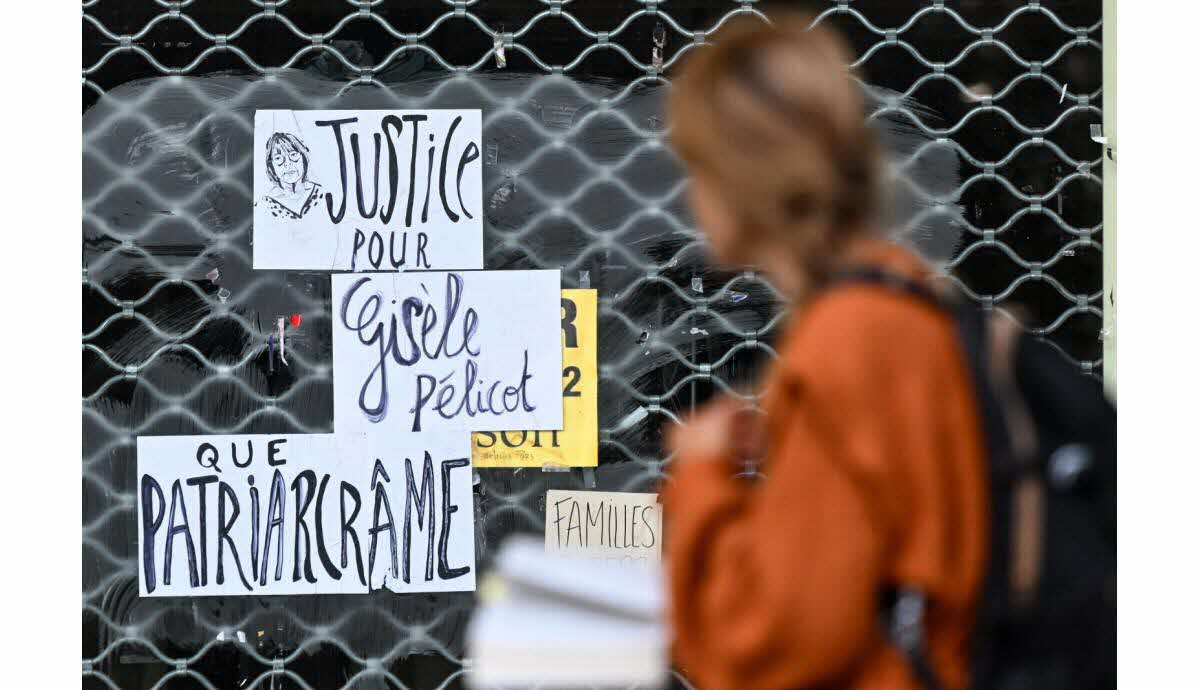 JUSTICE
POUR
Gisèle
Pélicot
R
2
SON
QUE
PATRIARCRÂME
FAMILLES